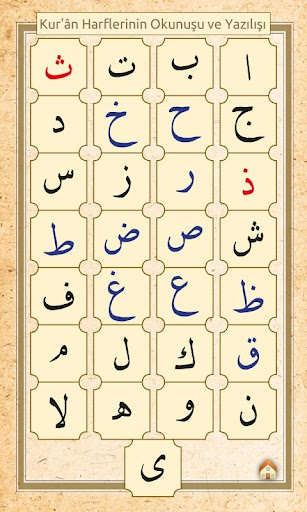 Kur'ân Harflerinin Okunuşu ve Yazılışı
ا ب ت ث
ج ح خ د
ذ ر ز س
ش ص ض ط
ظ ع غ ف
ق ك ل م
ن و ه لا
ى